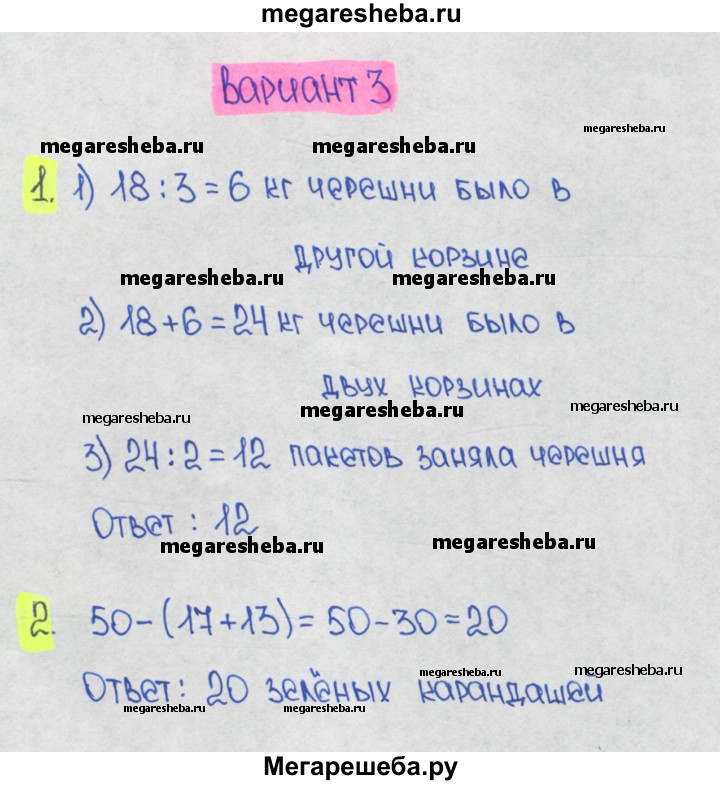 megaresheba.ru
Вариант 3
megaresheba.ru
megaresheba.ru megaresheba.ru
1. 1) 18 : 3 = 6 кг черешни было в
другой корзине
megaresheba.ru megaresheba.ru
2) 18 + 6 = 24 кг черешни было в
двух корзинах
megaresheba.ru megaresheba.ru megaresheba.ru
3) 24 : 2 = 12 пакетов заняла черешня
Ответ : 12
megaresheba.ru megaresheba.ru
2. 50 - (17 + 13) = 50 - 30 = 20
megaresheba.ru megaresheba.ru
Ответ : 20 зелёных карандашей
megaresheba.ru megaresheba.ru
Мегарешеба.ру